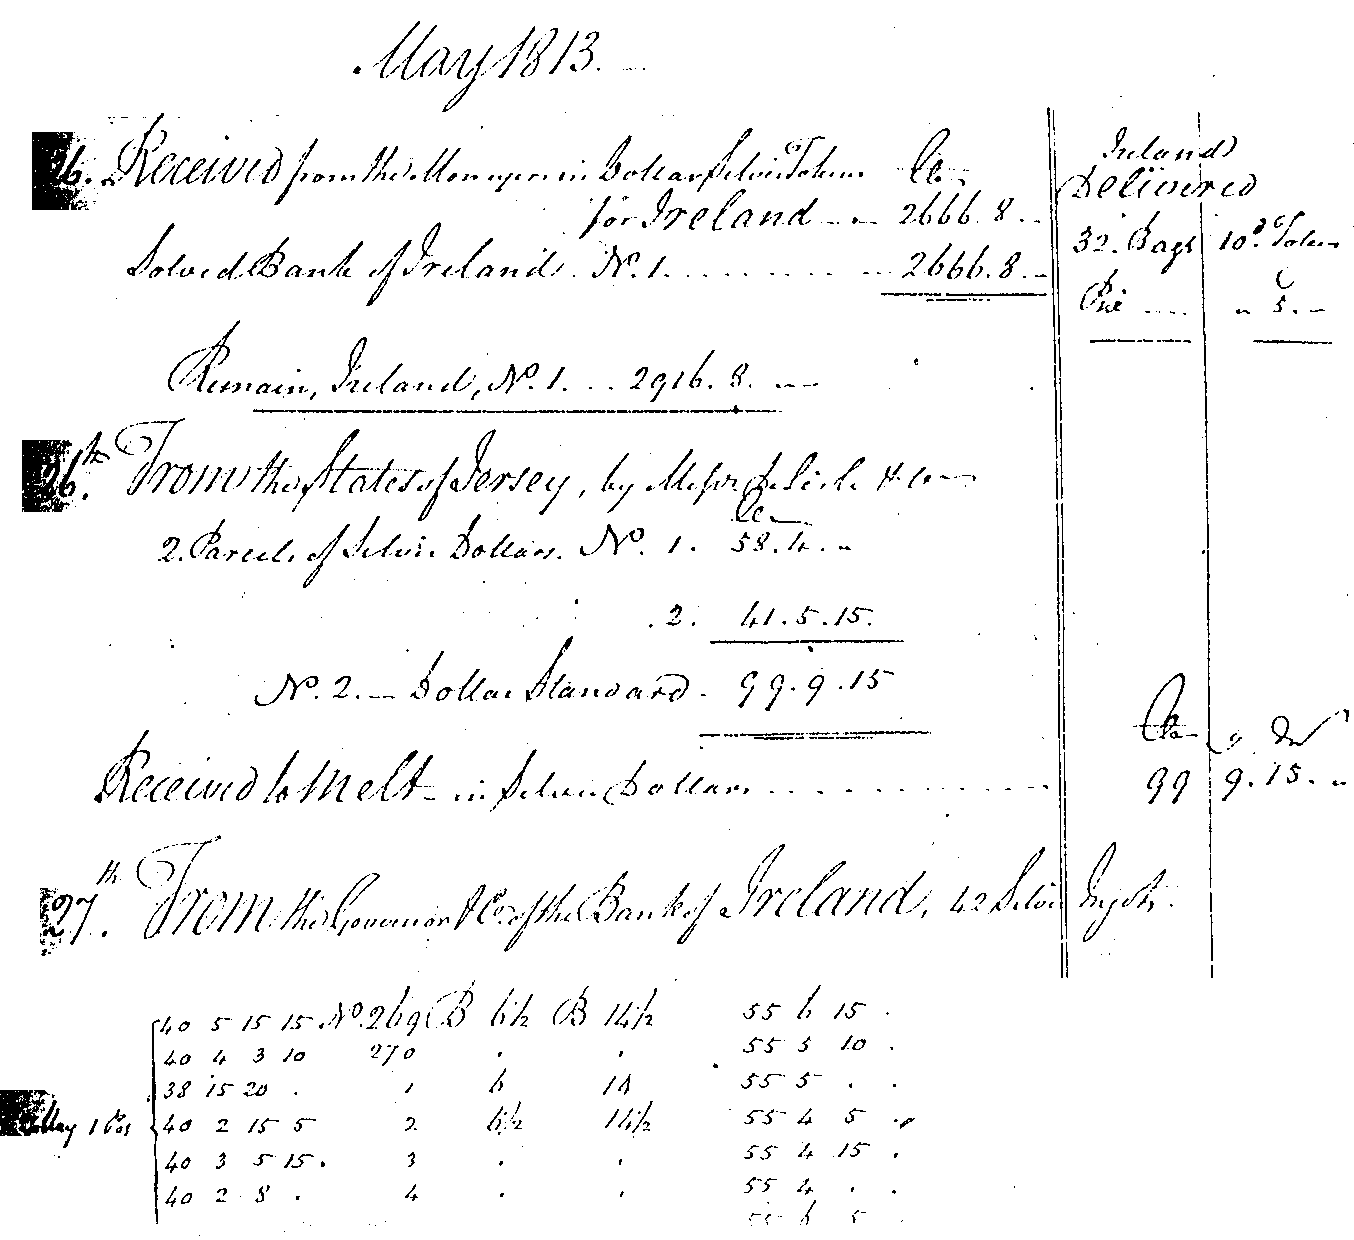 May 1813.
26. Received from the Moneyers in Dollar Silver Tokens
for Ireland 2666.8.
Solved Bank of Ireland. No. 1. 2666.8.
Ireland
Delivered
32. Bags 10d. Tokens
Pix 5.
Remain, Ireland, No. 1. 2916.8.
26th. From the States of Jersey, by Messrs De Lisle & Co
2. Parcels of Silver Dollars. No. 1. 58.4.
.2. 41.5.15.
No. 2. Dollar Standard. 99.9.15
Received to Melt in Silver Dollars 99 9.15.
27th. From the Governor & Co. of the Bank of Ireland, 42 Silver Ingots.
40 5 15 15 No. 269 B 6½ B 14½ 55 6 15 .
40 4 3 10 270 . . 55 5 10 .
38 15 20 . 1 6 14 55 5 . .
40 2 15 5 2 6½ 14½ 55 4 5 .
40 3 5 15. 3 . . 55 4 15 .
40 2 8 . 4 . . 55 4 . .
55 6 5 .